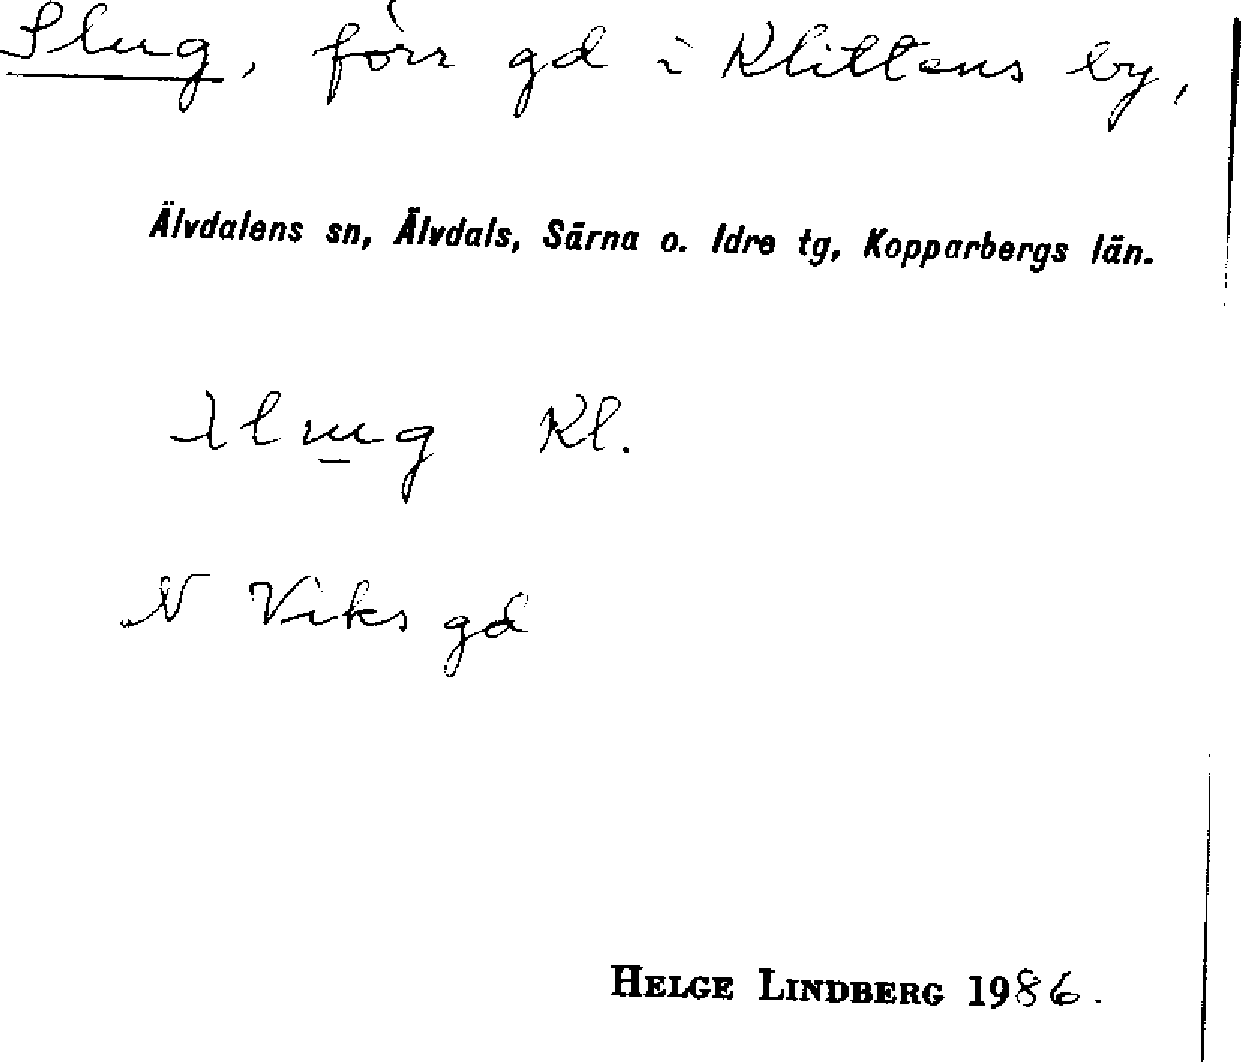 Slug, förr gd i Klittens by,
Älvdalens sn, Älvdals, Särna o. Idre tg, Kopparbergs län.
slug Kl.
N Viks gd
HELGE LINDBERG 1986.